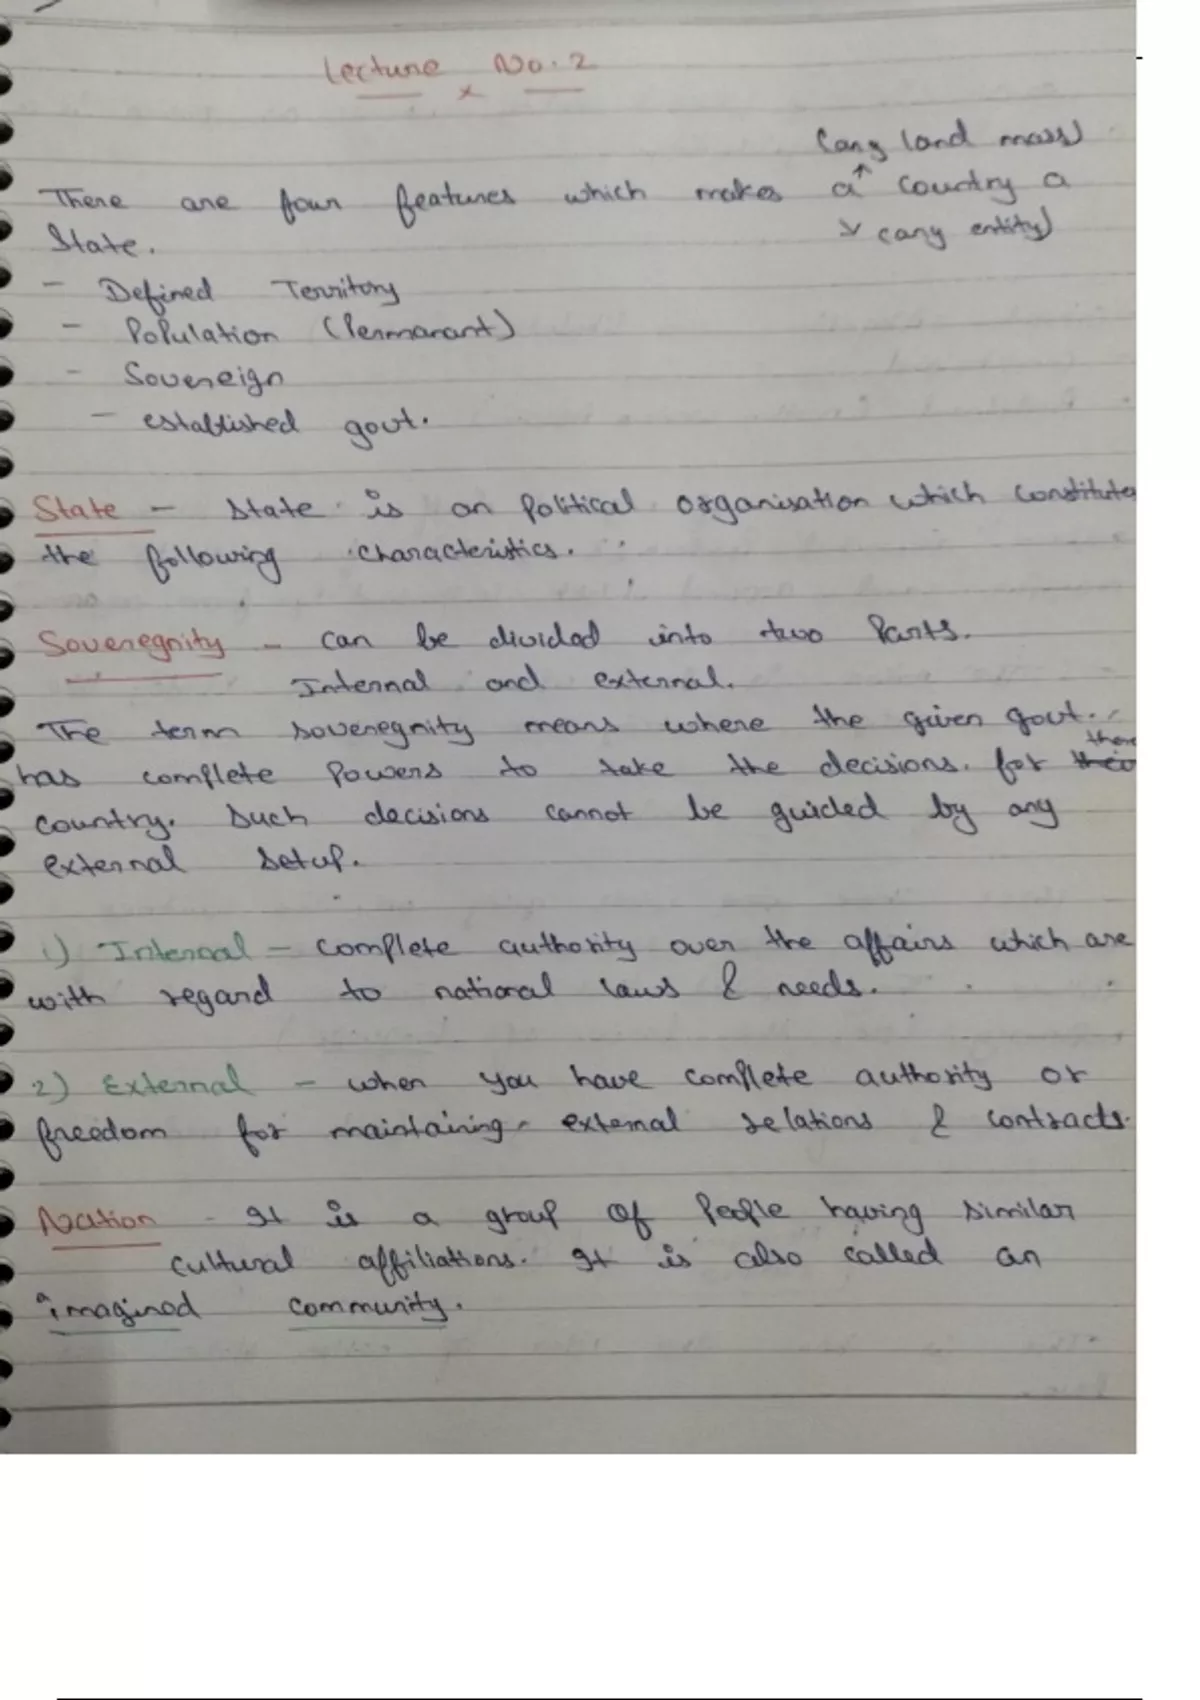 Lecture No. 2
x
(any land mass)
There are four features which makes a country a
State.
(any entity)
- Defined Territory
- Population (Permanant)
- Sovereign
- established govt.
State - State is an political organisation which constitutes
the following characteristics.
Soveregnity - can be divided into two parts.
Internal and external.
The term soveregnity means where the given govt.
has complete powers to take the decisions. for
country. Such decisions cannot be guided by any
external setup.
1) Internal - complete authority over the affairs which are
with regard to national laws & needs.
2) External - when you have complete authority or
freedom for maintaining external relations & contracts.
Nation - It is a group of people having similar
cultural affiliations. It is also called an
imagined community.